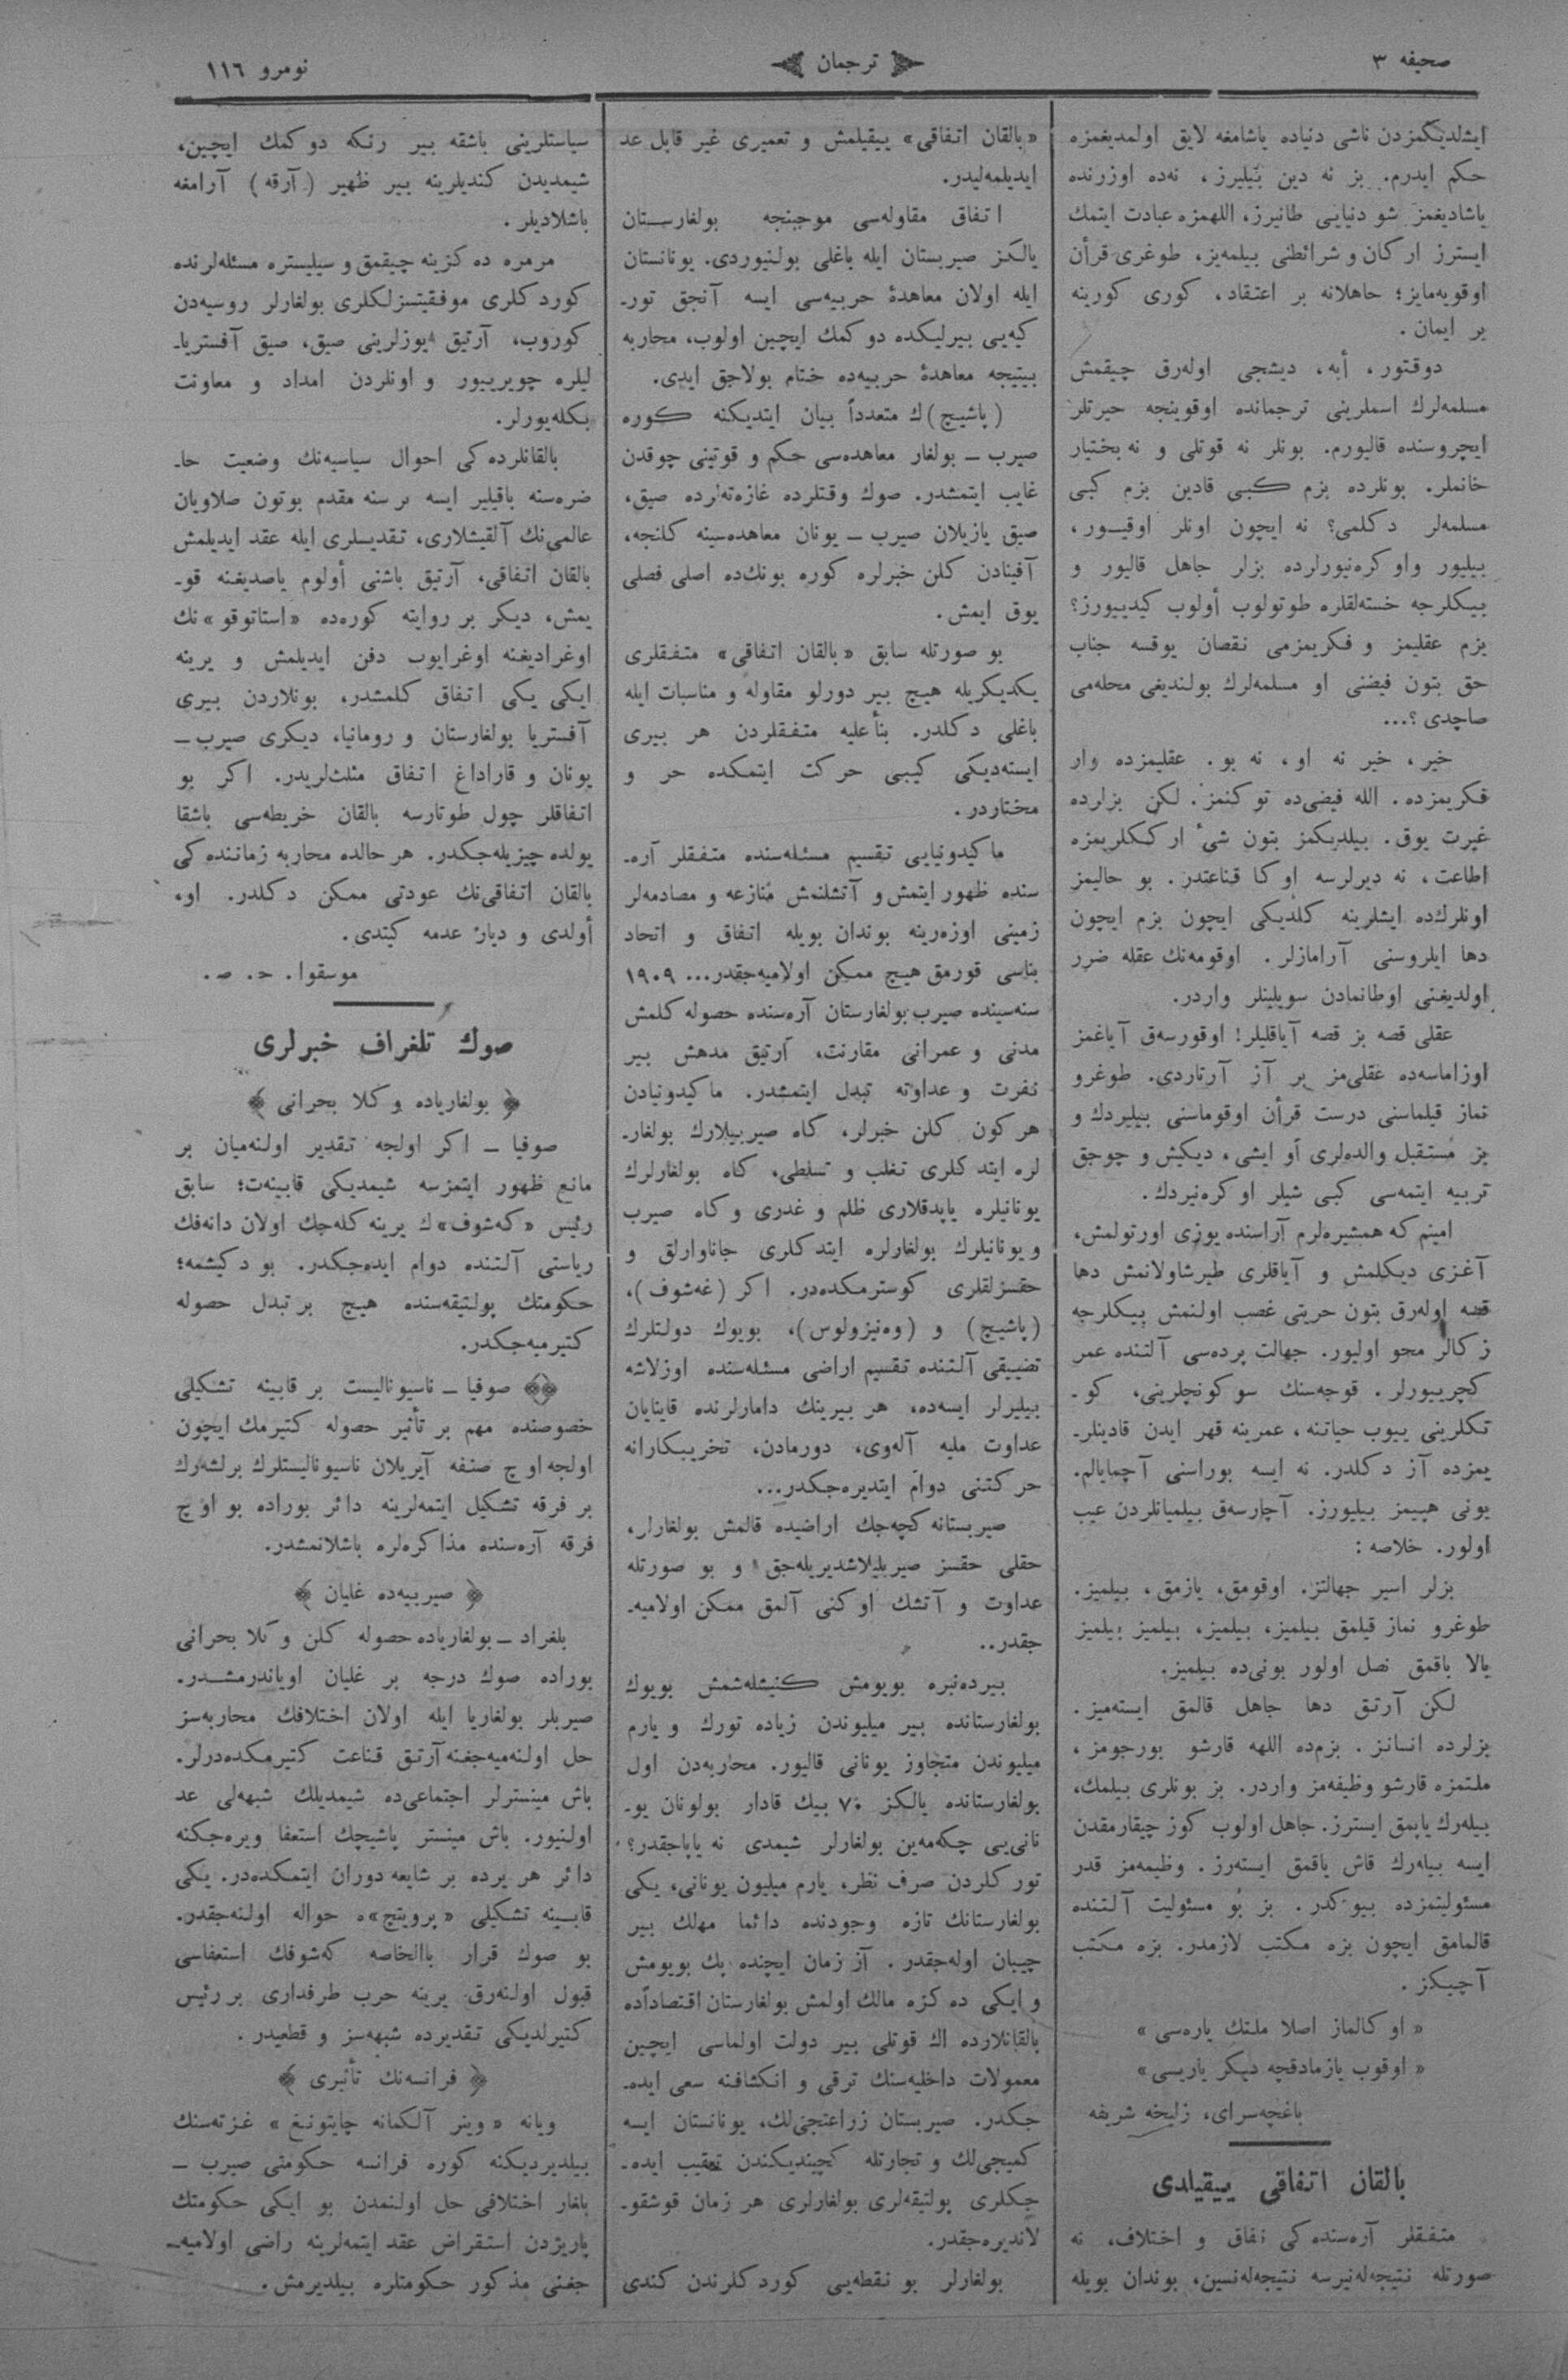 صحیفه ٣
ترجمان
نومرو ١١٦
ایشلدیکمزدن ناشی دنیاده یاشامغه لایق اولمدیغمزه
حکم ایدرم. بز نه دین بیلیرز، نه‌ده اوزرنده
یاشادیغمز شو دنیایی طانیرز، اللهمزه عبادت ایتمك
ایسترز ارکان و شرائطنی بیلمه‌یز، طوغری قرأن
اوقویه‌مایز؛ جاهلانه بر اعتقاد، کوری کورینه
بر ایمان.
دوقتور، أبه، دیشجی اوله‌رق چیقمش
مسلمه‌لرك اسملرینی ترجمانده اوقوینجه حیرتلر
ایچروسنده قالیورم. بونلر نه قوتلی و نه بختیار
خانملر. بونلرده بزم کبی قادین بزم کبی
مسلمه‌لر دکلمی؟ نه ایچون اونلر اوقیور،
بیلیور واوکره‌نیورلرده بزلر جاهل قالیور و
بیکلرجه خسته‌لقلره طوتولوب أولوب کیدییورز؟
بزم عقلیمز و فکریمزمی نقصان یوقسه جناب
حق بتون فیضنی او مسلمه‌لرك بولندیغی محله‌می
صاچدی؟...
خیر، خیر نه او، نه بو. عقلیمزده وار
فکریمزده. الله فیضی‌ده توکنمز. لکن بزلرده
غیرت یوق. بیلدیکمز بتون شیٔ ارککلریمزه
اطاعت، نه دیرلرسه اوکا قناعتدر. بو حالیمز
اونلرك‌ده ایشلرینه کلدیکی ایچون بزم ایچون
دها ایلروسنی آرامازلر. اوقومه‌نك عقله ضرر
اولدیغنی اوطانمادن سویلینلر واردر.
عقلی قصه بز قصه آیاقلیلر! اوقورسه‌ق آیاغمز
اوزاماسه‌ده عقلی‌مز بر آز آرتاردی. طوغرو
نماز قیلماسنی درست قرأن اوقوماسنی بیلیردك و
بز مستقبل والده‌لری أو ایشی، دیکیش و چوجق
تربیه ایتمه‌سی کبی شیلر اوکره‌نیردك.
امینم که همشیره‌لرم آراسنده یوزی اورتولمش،
آغزی دیکلمش و آیاقلری طیرشاولانمش دها
قصه اوله‌رق بتون حریتی غصب اولنمش بیکلرجه
زکالر محو اولیور. جهالت پرده‌سی آلتنده عمر
کچرییورلر. قوجه‌سنك سوکونچلرینی، کو-
تکلرینی ییوب حیاتنه، عمرینه قهر ایدن قادینلر-
یمزده آز دکلدر. نه ایسه بوراسنی آچمایالم.
بونی هپیمز بیلیورز. آچارسه‌ق بیلمیانلردن عیب
اولور. خلاصه:
بزلر اسیر جهالتز. اوقومق، یازمق، بیلمیز.
طوغرو نماز قیلمق بیلمیز، بیلمیز، بیلمیز بیلمیز
بالا باقمق نصل اولور بونی‌ده بیلمیز.
لکن آرتق دها جاهل قالمق ایسته‌میز.
بزلرده انسانز. بزم‌ده اللهه قارشو بورجومز،
ملتمزه قارشو وظیفه‌مز واردر. بز بونلری بیلمك،
بیله‌رك یاپمق ایسترز. جاهل اولوب کوز چیقارمقدن
ایسه بیله‌رك قاش یاقمق ایسته‌رز. وظیفه‌مز قدر
مسئولیتمزده بیوکدر. بز بو مسئولیت آلتنده
قالمامق ایچون بزه مکتب لازمدر. بزه مکتب
آچیکز.
« اوکالماز اصلا ملتك یاره‌سی »
« اوقوب یازمادقچه دیکر یاریسی »
باغچه‌سرای، زلیخه شریفه
بالقان اتفاقی ییقیلدی
متفقلر آره‌سنده‌کی نفاق و اختلاف، نه
صورتله نتیجه‌له‌نیرسه نتیجه‌له‌نسین، بوندان بویله
«بالقان اتفاقی» ییقیلمش و تعمیری غیر قابل عد
ایدیلمه‌لیدر.
اتفاق مقاوله‌سی موجبنجه بولغارستان
یالکز صیربستان ایله باغلی بولنیوردی. یونانستان
ایله اولان معاهدهٔ حربیه‌سی ایسه آنجق تور-
کیه‌یی بیرلیکده دوکمك ایچین اولوب، محاربه
بیتیجه معاهدهٔ حربیه‌ده ختام بولاجق ایدی.
(پاشیچ)ك متعدداً بیان ایتدیکنه کوره
صیرب – بولغار معاهده‌سی حکم و قوتینی چوقدن
غایب ایتمشدر. صوك وقتلرده غازه‌ته‌لرده صیق،
صیق یازیلان صیرب – یونان معاهده‌سینه کلنجه،
آفینادن کلن خبرلره کوره بونك‌ده اصلی فصلی
یوق ایمش.
بو صورتله سابق «بالقان اتفاقی» متفقلری
یکدیکریله هیچ بیر دورلو مقاوله و مناسبات ایله
باغلی دکلدر. بنأً علیه متفقلردن هر بیری
ایسته‌دیکی کیبی حرکت ایتمکده حر و
مختاردر.
ماکیدونیایی تقسیم مسئله‌سنده متفقلر آره-
سنده ظهور ایتمش و آتشلنمش منازعه و مصادمه‌لر
زمینی اوزه‌رینه بوندان بویله اتفاق و اتحاد
بناسی قورمق هیچ ممکن اولامیه‌جقدر... ١٩٠٩
سنه‌سینده صیرب بولغارستان آره‌سنده حصوله کلمش
مدنی و عمرانی مقارنت، آرتیق مدهش بیر
نفرت و عداوته تبدل ایتمشدر. ماکیدونیادن
هرکون کلن خبرلر، کاه صیربیلارك بولغار-
لره ایتدکلری تغلب و تسلطی، کاه بولغارلرك
یونانیلره یاپدقلاری ظلم و غدری وکاه صیرب
و یونانیلرك بولغارلره ایتدکلری جاناوارلق و
حقسزلقلری کوسترمکده‌در. اکر (غه‌شوف)،
(پاشیچ) و (وه‌نیزولوس)، بویوك دولتلرك
تضییقی آلتنده تقسیم اراضی مسئله‌سنده اوزلاشه
بیلیرلر ایسه‌ده، هر بیرینك دامارلرنده قاینایان
عداوت ملیه آله‌وی، دورمادن، تخریبکارانه
حرکتنی دوام ایتدیره‌جکدر...
صیربستانه کچه‌جك اراضیده قالمش بولغارلر،
حقلی حقسز صیربلیلاشدیریله‌جق و بو صورتله
عداوت و آتشك اوکنی آلمق ممکن اولامیه-
جقدر..
بیرده‌نبره بویومش کنیشله‌شمش بویوك
بولغارستانده بیر میلیوندن زیاده تورك و یارم
میلیوندن متجاوز یونانی قالیور. محاربه‌دن اول
بولغارستانده یالکز ٧٠ بیك قادار بولونان یو-
نانی‌یی چکه‌مه‌ین بولغارلر شیمدی نه یاپاجقدر؟
تورکلردن صرف نظر، یارم میلیون یونانی، یکی
بولغارستانك تازه وجودنده دائما مهلك بیر
چیبان اوله‌جقدر. آز زمان ایچنده پك بویومش
و ایکی دکزه مالك اولمش بولغارستان اقتصاداًده
بالقانلارده اك قوتلی بیر دولت اولماسی ایچین
معمولات داخلیه‌سنك ترقی و انکشافنه سعی ایده-
جکدر. صیربستان زراعتجی‌لك، یونانستان ایسه
کمیجی‌لك و تجارتله کچیندیکندن تعقیب ایده-
جکلری پولتیقه‌لری بولغارلری هر زمان قوشقو-
لاندیره‌جقدر.
بولغارلر بو نقطه‌یی کوردکلرندن کندی
سیاستلرینی باشقه بیر رنکه دوکمك ایچین،
شیمدیدن کندیلرینه بیر ظهیر (آرقه) آرامغه
باشلادیلر.
مرمره ده کزینه چیقمق و سیلیستره مسئله‌لرنده
کوردکلری موفقیتسزلکلری بولغارلر روسیه‌دن
کوروب، آرتیق یوزلرینی صیق، صیق آفستریا-
لیلره چویرییور و اونلردن امداد و معاونت
بکله‌یورلر.
بالقانلرده‌کی احوال سیاسیه‌نك وضعیت حا-
ضره‌سنه باقیلیر ایسه بر سنه مقدم بوتون صلاویان
عالمی‌نك آلقیشلاری، تقدیسلری ایله عقد ایدیلمش
بالقان اتفاقی، آرتیق باشنی أولوم یاصدیغنه قو-
یمش، دیکر بر روایته کوره‌ده «استاتوقو»نك
اوغرادیغنه اوغرایوب دفن ایدیلمش و یرینه
ایکی یکی اتفاق کلمشدر، بونلاردن بیری
آفستریا بولغارستان و رومانیا، دیکری صیرب –
یونان و قاراداغ اتفاق مثلث‌لریدر. اکر بو
اتفاقلر چول طوتارسه بالقان خریطه‌سی باشقا
یولده چیزیله‌جکدر. هر حالده محاربه زماننده‌کی
بالقان اتفاقی‌نك عودتی ممکن دکلدر. او،
أولدی و دیار عدمه کیتدی.
موسقوا. ح. ص.
صوك تلغراف خبرلری
بولغاریاده وکلا بحرانی
صوفیا – اکر اولجه تقدیر اولنه‌میان بر
مانع ظهور ایتمزسه شیمدیکی قابینه‌ت؛ سابق
رئیس «که‌شوف»ك یرینه کله‌جك اولان دانه‌فك
ریاستی آلتنده دوام ایده‌جکدر. بو دکیشمه؛
حکومتك پولتیقه‌سنده هیچ بر تبدل حصوله
کتیرمیه‌جکدر.
صوفیا – ناسیونالیست بر قابینه تشکیلی
خصوصنده مهم بر تأثیر حصوله کتیرمك ایچون
اولجه اوچ صنفه آیریلان ناسیونالیستلرك برلشه‌رك
بر فرقه تشکیل ایتمه‌لرینه دائر بوراده بو اوچ
فرقه آره‌سنده مذاکره‌لره باشلانمشدر.
صیربیه‌ده غلیان
بلغراد – بولغاریاده حصوله کلن وکلا بحرانی
بوراده صوك درجه بر غلیان اویاندرمشدر.
صیربلر بولغاریا ایله اولان اختلافك محاربه‌سز
حل اولنه‌میه‌جغنه آرتق قناعت کتیرمکده‌درلر.
باش مینسترلر اجتماعی‌ده شیمدیلك شبهه‌لی عد
اولنیور. باش مینستر پاشیچك استعفا ویره‌جکنه
دائر هر یرده بر شایعه دوران ایتمکده‌در. یکی
قابینه تشکیلی «پرویتچ»ه حواله اولنه‌جقدر.
بو صوك قرار باالخاصه که‌شوفك استعفاسی
قبول اولنه‌رق یرینه حرب طرفداری بر رئیس
کتیرلدیکی تقدیرده شبهه‌سز و قطعیدر.
فرانسه‌نك تأثیری
ویانه «وینر آلکمانه چایتونیغ» غزته‌سنك
بیلدیردیکنه کوره فرانسه حکومتی صیرب –
بلغار اختلافی حل اولنمدن بو ایکی حکومتك
پاریژدن استقراض عقد ایتمه‌لرینه راضی اولامیه-
جغنی مذکور حکومتلره بیلدیرمش.